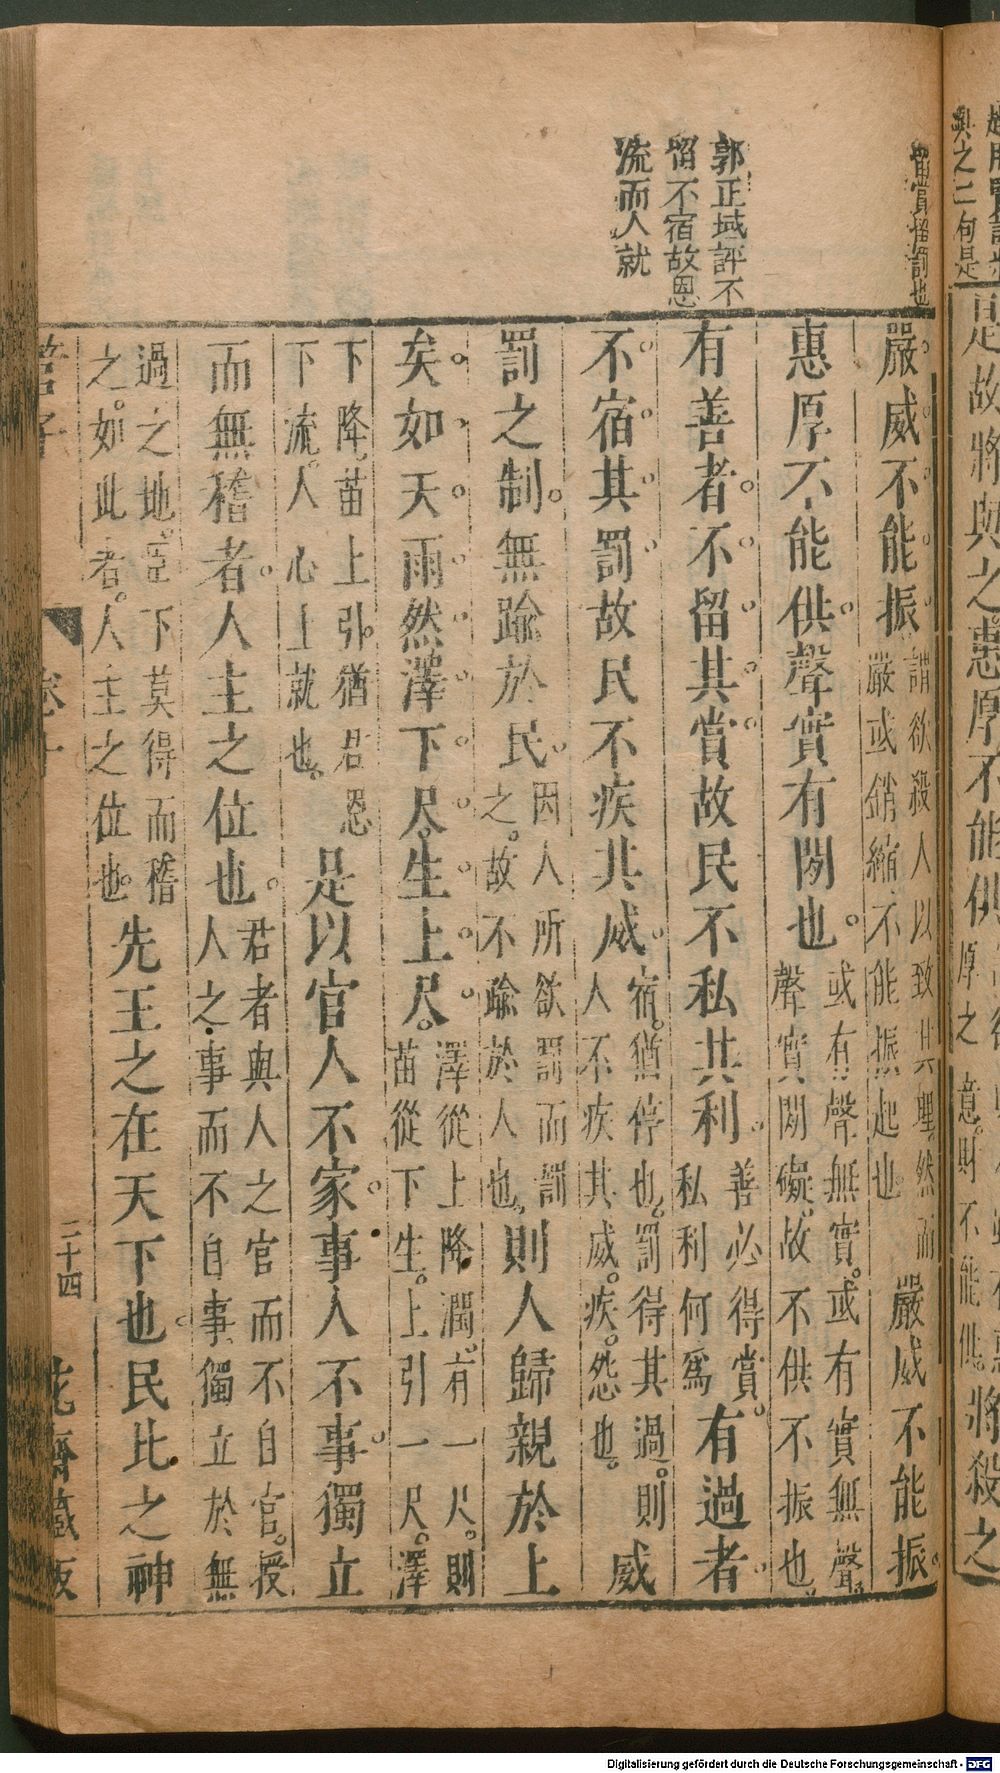 與之二句是
是故將與之惠厚不能供
厚之意。財不能供。
將殺之
賞
罰也
郭正域評不
留不宿故恩
流而人就
嚴威不能振
謂欲殺人以致其理。然而
嚴或銷縮。不能振起也。
嚴威不能振。
惠厚不能供。聲實有閒也。
或有聲無實。或有實無聲。
聲實閒礙。故不供不振也。
有善者。不留其賞。故民不私其利。
善必得賞。
私利何爲
有過者。
不宿其罰。故民不疾其威。
宿。猶停也。罰得其過。則
人不疾其威。疾。怨也。
威
罰之制。無踰於民。
因人所欲罰而罰
之。故不踰於人也。
則人歸親於上
矣。如天雨然。澤下尺。生上尺。
澤從上降潤。有一尺。則
苗從下生。上引一尺。澤
下降。苗上引。猶君恩
下流。人心上就也。
是以官人不家。事人不事。獨立
而無稽者。人主之位也。
君者與人之官而不自官。授
人之事而不自事獨立於無
過之地。臣下莫得而稽
之。如此者。人主之位也。
先王之在天下也。民比之神
管子
卷十
二十四
花齋藏板
Digitalisierung gefördert durch die Deutsche Forschungsgemeinschaft - DFG